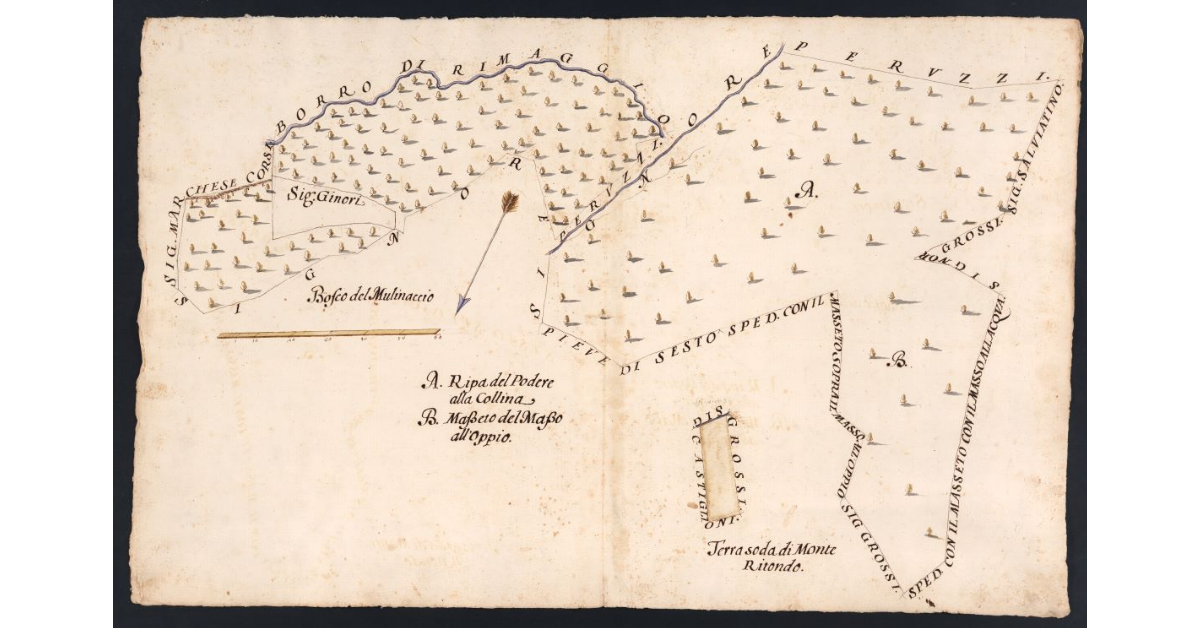 BORRO DI RIMAGGIO
SIG. MARCHESE CORSI
Sig. Ginori
SIGNORE PERUZZI.
SIGNORE PERUZZI.
Bosco del Mulinaccio
SIG. SALVIATINO.
SIG. GROSSI.
A.
B.
PIEVE DI SESTO SPED. CON IL MASSETO SOPRA IL MASSO AL'OPPIO
SIG GROSSI.
SPED. CON IL MASSETO CON IL MASSO ALL ACQUA.
A. Ripa del Podere
alla Collina
B. Maßeto del Maßo
all'Oppio.
GROSSI.
CASTIGLIONI.
Terra soda di Monte
Ritondo.